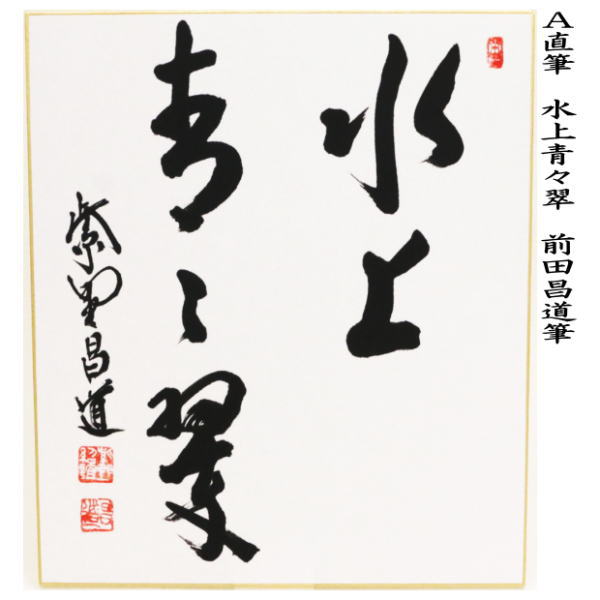 A直筆 水上青々翠 前田昌道筆
水上
青々翠
紫野昌道